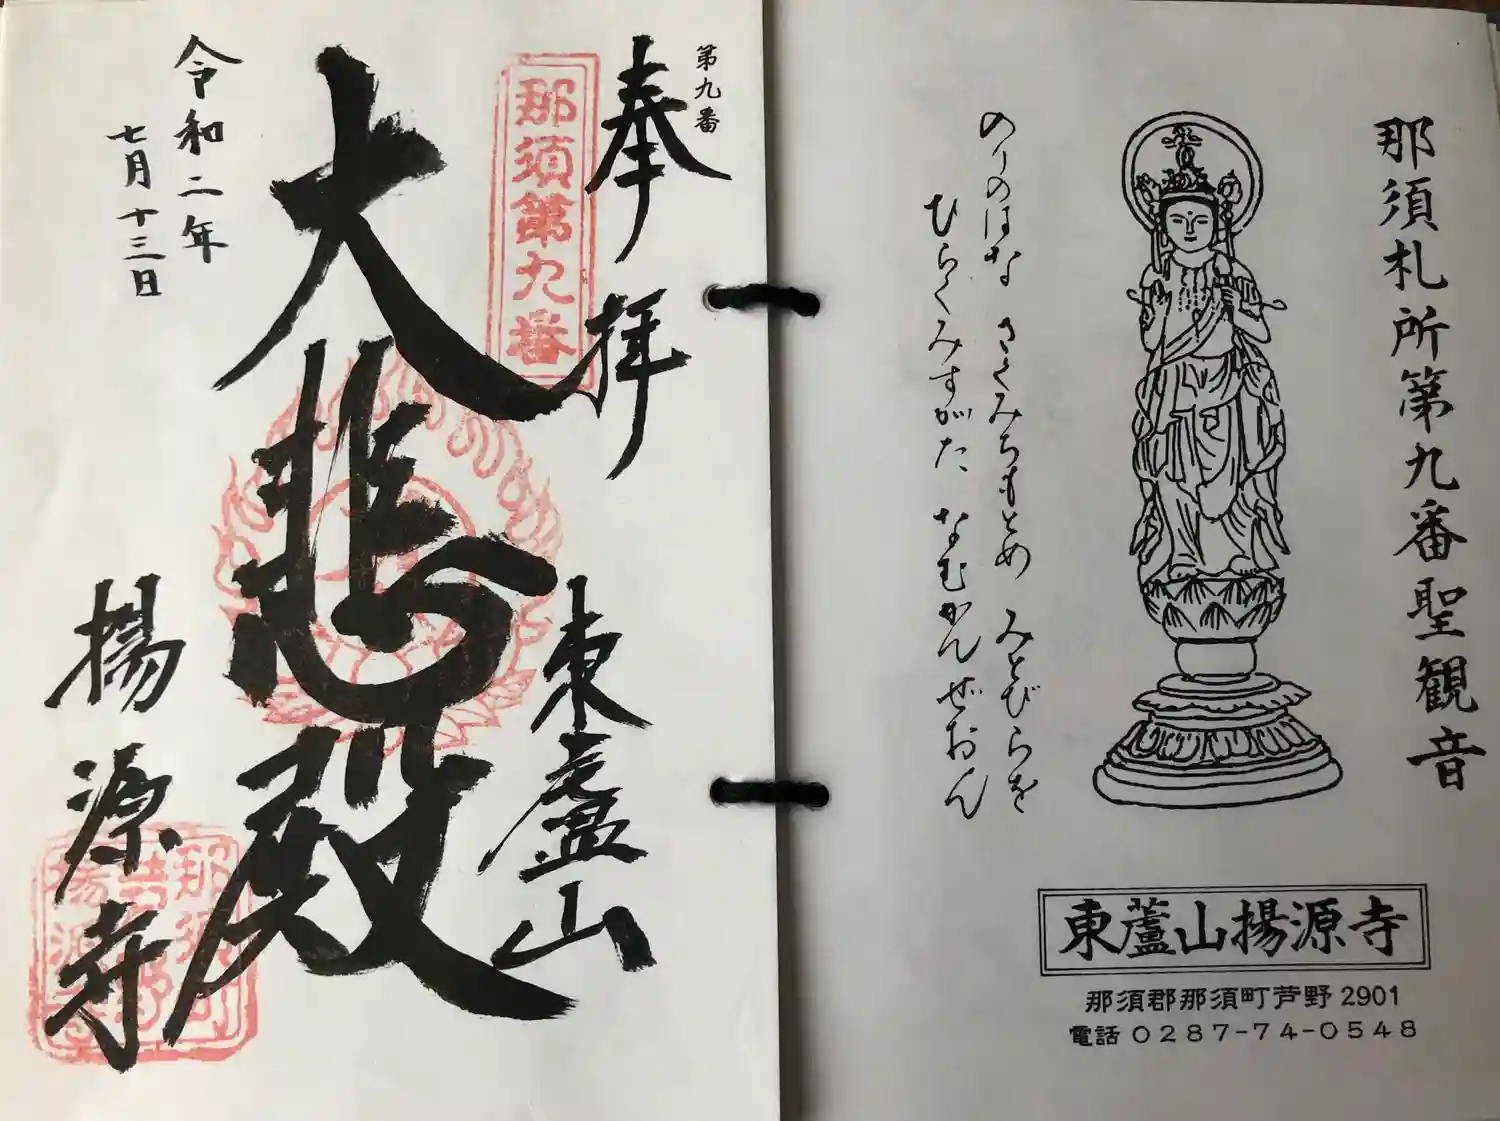 那須札所第九番聖観音
のりのはな さくみちもとめ みとびらを
ひらくみすがた なむかんぜおん
東蘆山揚源寺
那須郡那須町芦野2901
電話0287-74-0548
第九番
奉拝
那須第九番
大悲殿
東蘆山
揚源寺
令和二年
七月十三日